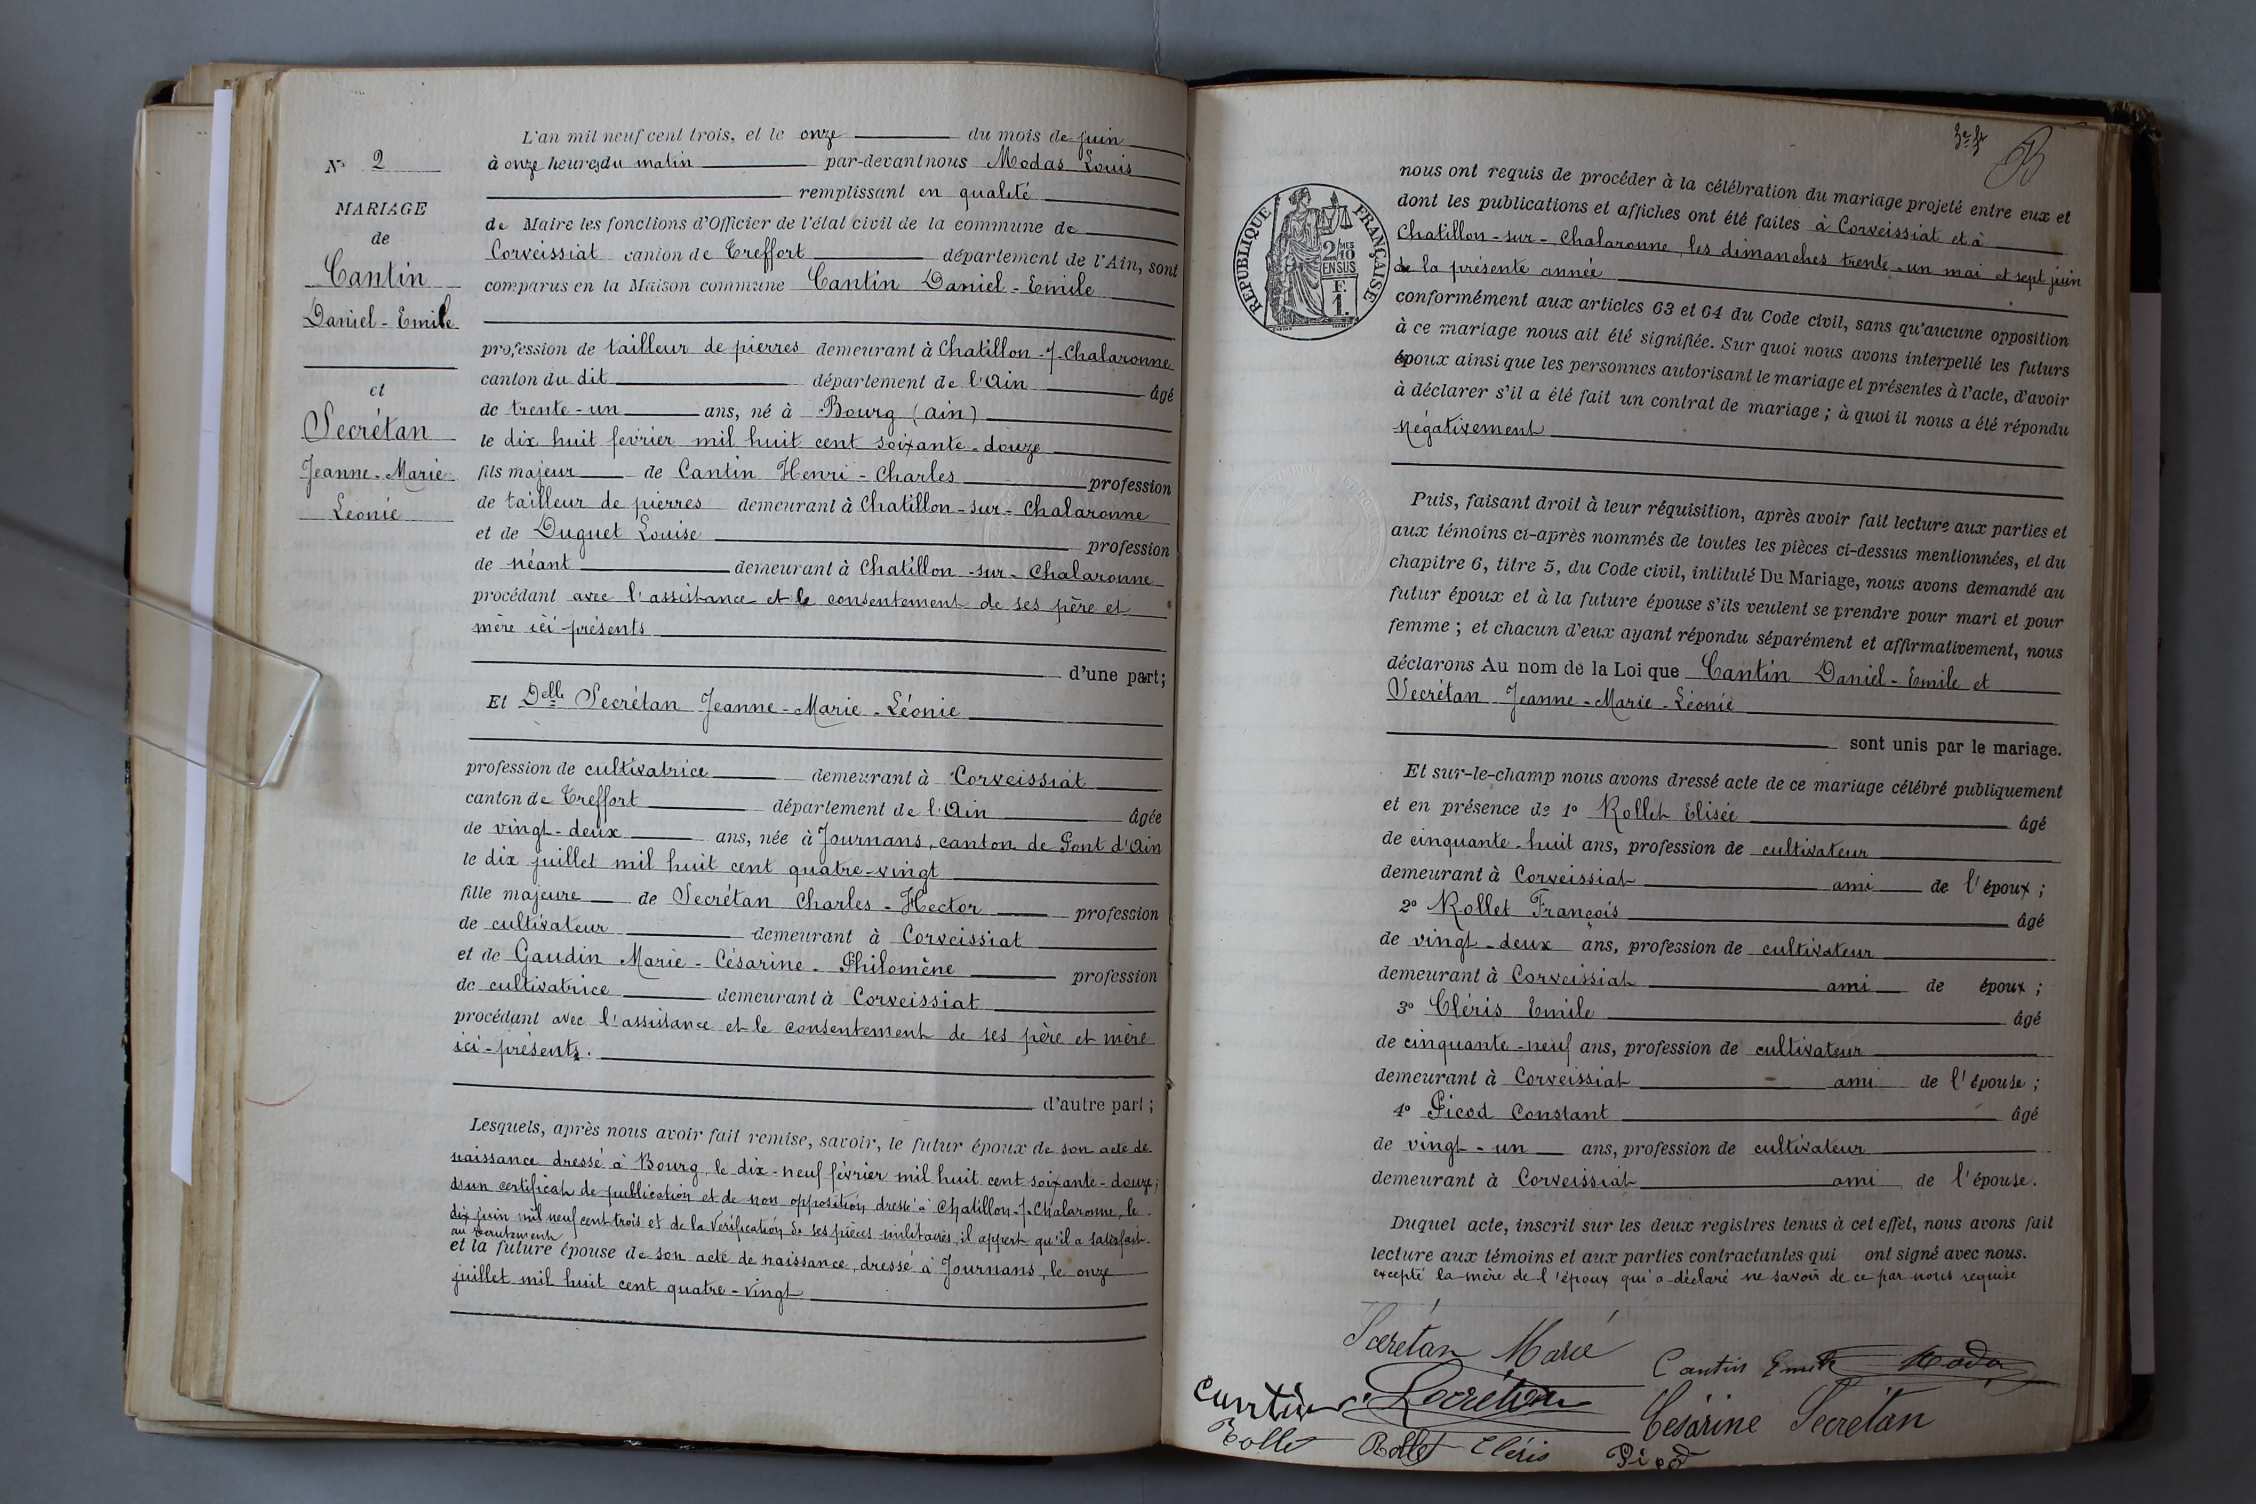 L'an mil neuf cent trois, et le onze du mois de juin
N° 2
à onze heures du matin par-devant nous Modas Louis
remplissant en qualité
MARIAGE
de Maire les fonctions d'Officier de l'état civil de la commune de
de
Corveissiat canton de Treffort département de l'Ain, sont
Cantin
comparus en la Maison commune Cantin Daniel-Emile
Daniel-Emile
profession de tailleur de pierres demeurant à Chatillon-s-Chalaronne
canton du dit département de l'Ain âgé
et
de trente-un ans, né à Bourg (Ain)
Secrétan
le dix huit fevrier mil huit cent soixante-douze
Jeanne-Marie
fils majeur de Cantin Henri-Charles profession
de tailleur de pierres demeurant à Chatillon-sur-Chalaronne
Léonie
et de Duguet Louise profession
de néant demeurant à Chatillon-sur-Chalaronne
procédant avec l'assistance et le consentement de ses père et
mère ici présents
d'une part;
Et Delle Secrétan Jeanne-Marie-Léonie
profession de cultivatrice demeurant à Corveissiat
canton de Treffort département de l'Ain âgée
de vingt-deux ans, née à Journans, canton de Pont d'Ain
le dix juillet mil huit cent quatre-vingt
fille majeure de Secrétan Charles-Hector profession
de cultivateur demeurant à Corveissiat
et de Gaudin Marie-Césarine-Philomène profession
de cultivatrice demeurant à Corveissiat
procédant avec l'assistance et le consentement de ses père et mère
ici-présents.
d'autre part;
Lesquels, après nous avoir fait remise, savoir, le futur époux de son acte de
naissance dressé à Bourg, le dix-neuf février mil huit cent soixante-douze;
d'un certificat de publication et de non opposition dressé à Chatillon-s-Chalaronne, le
dix juin mil neuf cent trois et de la vérification de ses pièces militaires, il appert qu'il a satisfait
au recrutement
et la future épouse de son acte de naissance, dressé à Journans, le onze
juillet mil huit cent quatre-vingt
nous ont requis de procéder à la célébration du mariage projeté entre eux et
dont les publications et affiches ont été faites à Corveissiat et à
Chatillon-sur-Chalaronne, les dimanches trente-un mai et sept juin
de la présente année
conformément aux articles 63 et 64 du Code civil, sans qu'aucune opposition
à ce mariage nous ait été signifiée. Sur quoi nous avons interpellé les futurs
époux ainsi que les personnes autorisant le mariage et présentes à l'acte, d'avoir
à déclarer s'il a été fait un contrat de mariage; à quoi il nous a été répondu
négativement
RÉPUBLIQUE FRANÇAISE
2/10 MES
EN SUS
F.
1.
Puis, faisant droit à leur réquisition, après avoir fait lecture aux parties et
aux témoins ci-après nommés de toutes les pièces ci-dessus mentionnées, et du
chapitre 6, titre 5, du Code civil, intitulé Du Mariage, nous avons demandé au
futur époux et à la future épouse s'ils veulent se prendre pour mari et pour
femme; et chacun d'eux ayant répondu séparément et affirmativement, nous
déclarons Au nom de la Loi que Cantin Daniel-Emile et
Secrétan Jeanne-Marie-Léonie
sont unis par le mariage.
Et sur-le-champ nous avons dressé acte de ce mariage célébré publiquement
et en présence de 1° Rollet Elisée âgé
de cinquante-huit ans, profession de cultivateur
demeurant à Corveissiat ami de l'époux;
2° Rollet François âgé
de vingt-deux ans, profession de cultivateur
demeurant à Corveissiat ami de époux;
3° Cléris Emile âgé
de cinquante-neuf ans, profession de cultivateur
demeurant à Corveissiat ami de l'épouse;
4° Picod Constant âgé
de vingt-un ans, profession de cultivateur
demeurant à Corveissiat ami de l'épouse.
Duquel acte, inscrit sur les deux registres tenus à cet effet, nous avons fait
lecture aux témoins et aux parties contractantes qui ont signé avec nous.
excepté la mère de l'époux qui a déclaré ne savoir de ce par nous requise
Secrétan Marie
Cantin Emile Modas
Cantin Secrétan
Césarine Secrétan
Rollet Rollet Cléris Picod